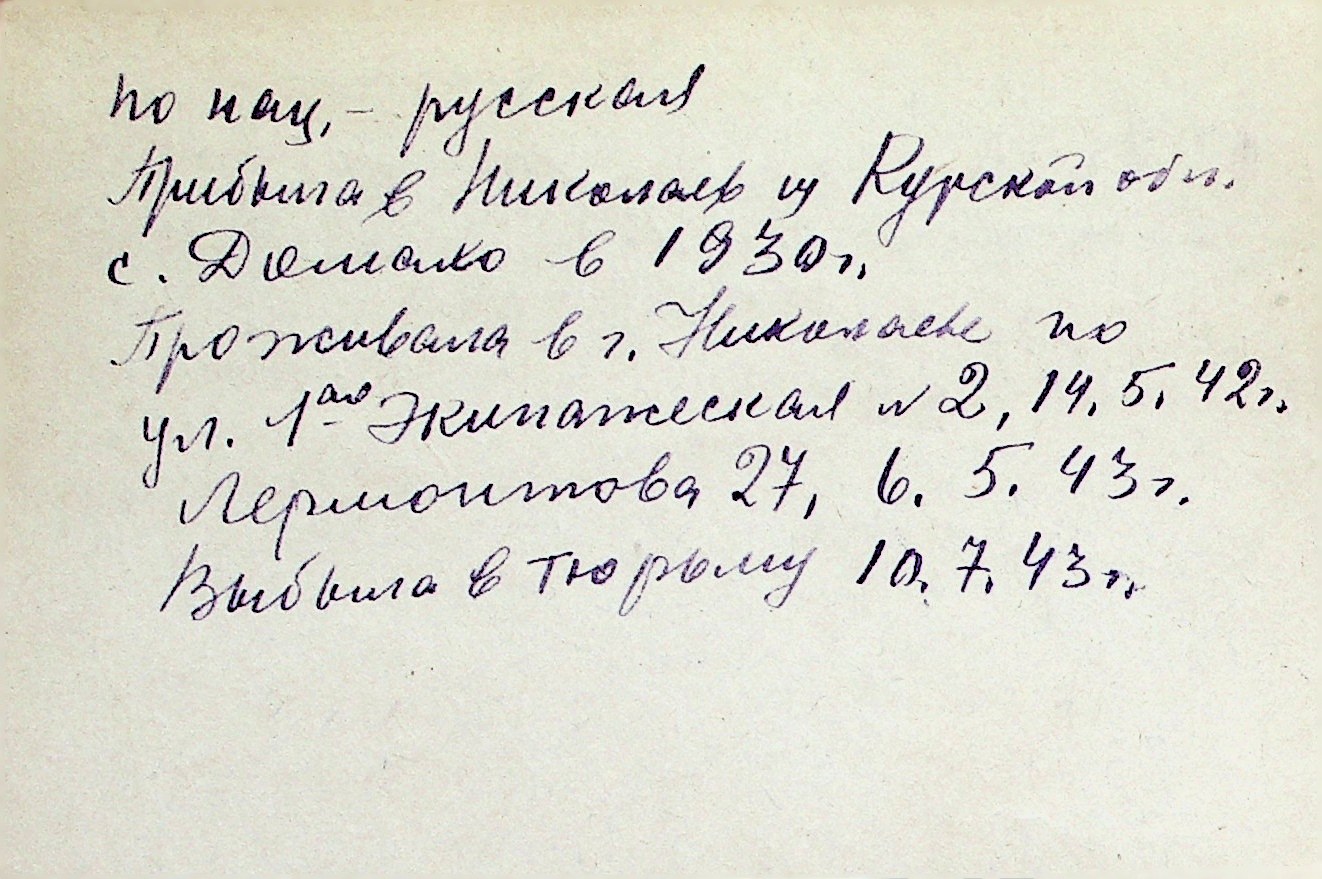 по нац, – русская
Прибыла в Николаев из Курской обл.
с. Домахо в 1930г.
Проживала в г. Николаеве по
ул. 1ая Экипажеская №2, 14.5.42г.
Лермонтова 27, 6.5.43г.
Выбыла в тюрьму 10.7.43г.